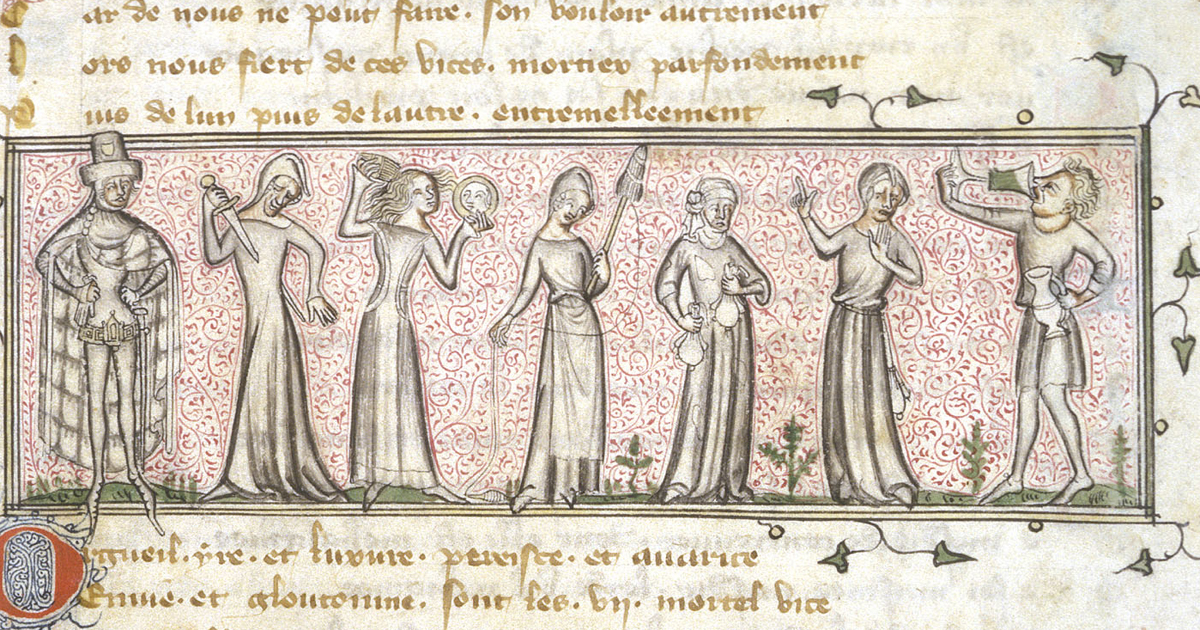 ar de nous ne peut faire . son vouloir autrement
ors nous fiert de ces vices . mortiex parfondement
uis de lun puis de lautre . entremelleement
Orgueil . yre . et luxure . pereisce . et auarice
Enuie . et gloutonnie . sont les . vii . mortel vice